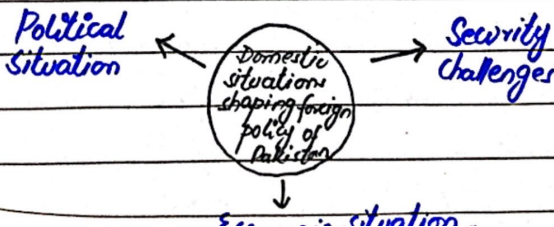 Political
situation
Domestic
situations
shaping foreign
policy of
Pakistan
Security
challenges
situation